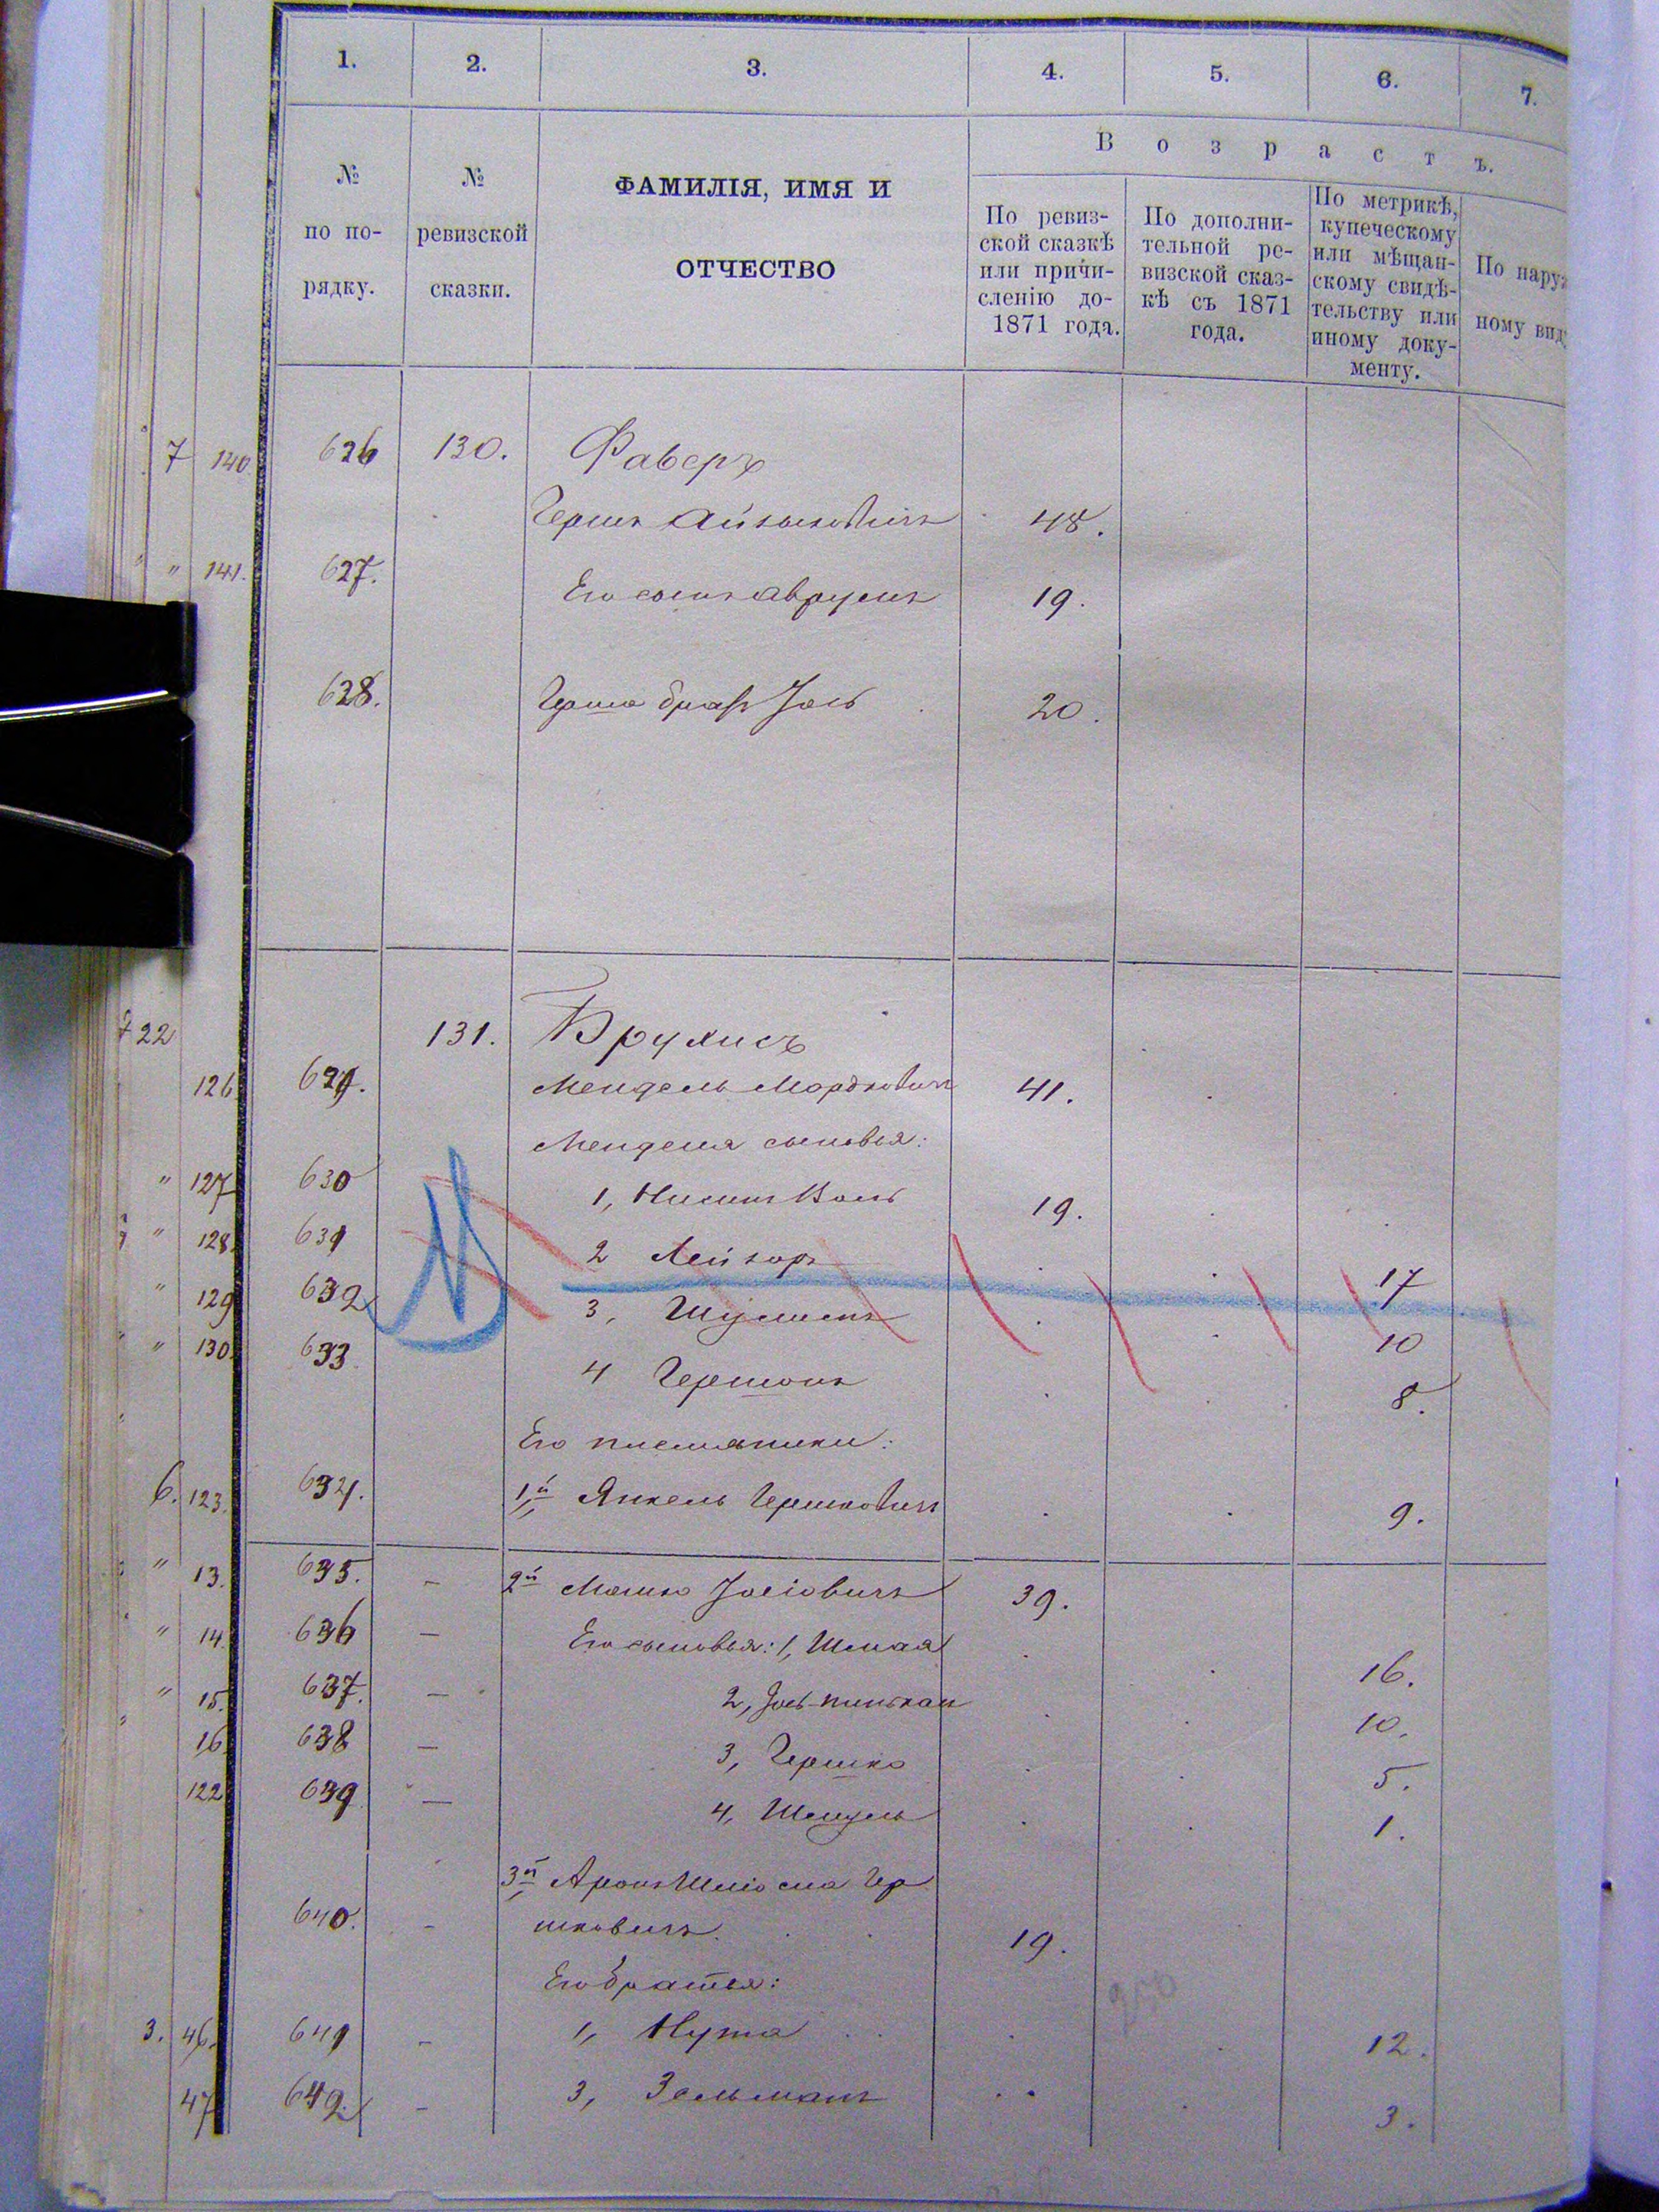 1. 2. 3. 4. 5. 6. 7.
№ по по-рядку.
№ ревизской сказки.
ФАМИЛІЯ, ИМЯ И
ОТЧЕСТВО
Возрастъ.
По ревиз-
ской сказкѣ
или причи-
сленію до-
1871 года.
По дополни-
тельной ре-
визской сказ-
кѣ съ 1871
года.
По метрикѣ,
купеческому
или мѣщан-
скому свидѣ-
тельству или
иному доку-
менту.
По наруж
ному вид
7 140. 626 130. Фаверъ
Гершъ Айзыковичъ 48.
" 141. 627. Его сынъ Аврумъ 19.
628. Герша братъ Іось 20.
722 131. Брулисъ
126 629. Мендель Мордковичъ 41.
Менделя сыновья:
" 127 630 1, НисинъВоль 19.
" 128. 631 2 Лейзоръ 17
" 129 632 3, Шулимъ 10
" 130. 633 4 Гершонъ 8.
Его племяники:
6. 123. 634. 1й Янкель Гершковичъ 9.
" 13. 635. — 2й Мошко Іосіовичъ 39.
" 14. 636 — Его сыновья: 1, Шмая 16.
" 15. 637. — 2, Іось-пинькас 10.
" 16 638 — 3, Гершко 5.
122 639 — 4, Шендель 1.
3й Аронъ Шліома Гер
640. - шковичъ. 19.
Его братья:
3. 46. 641 - 1, Нута 12.
47 642. - 3, Зельманъ 3.